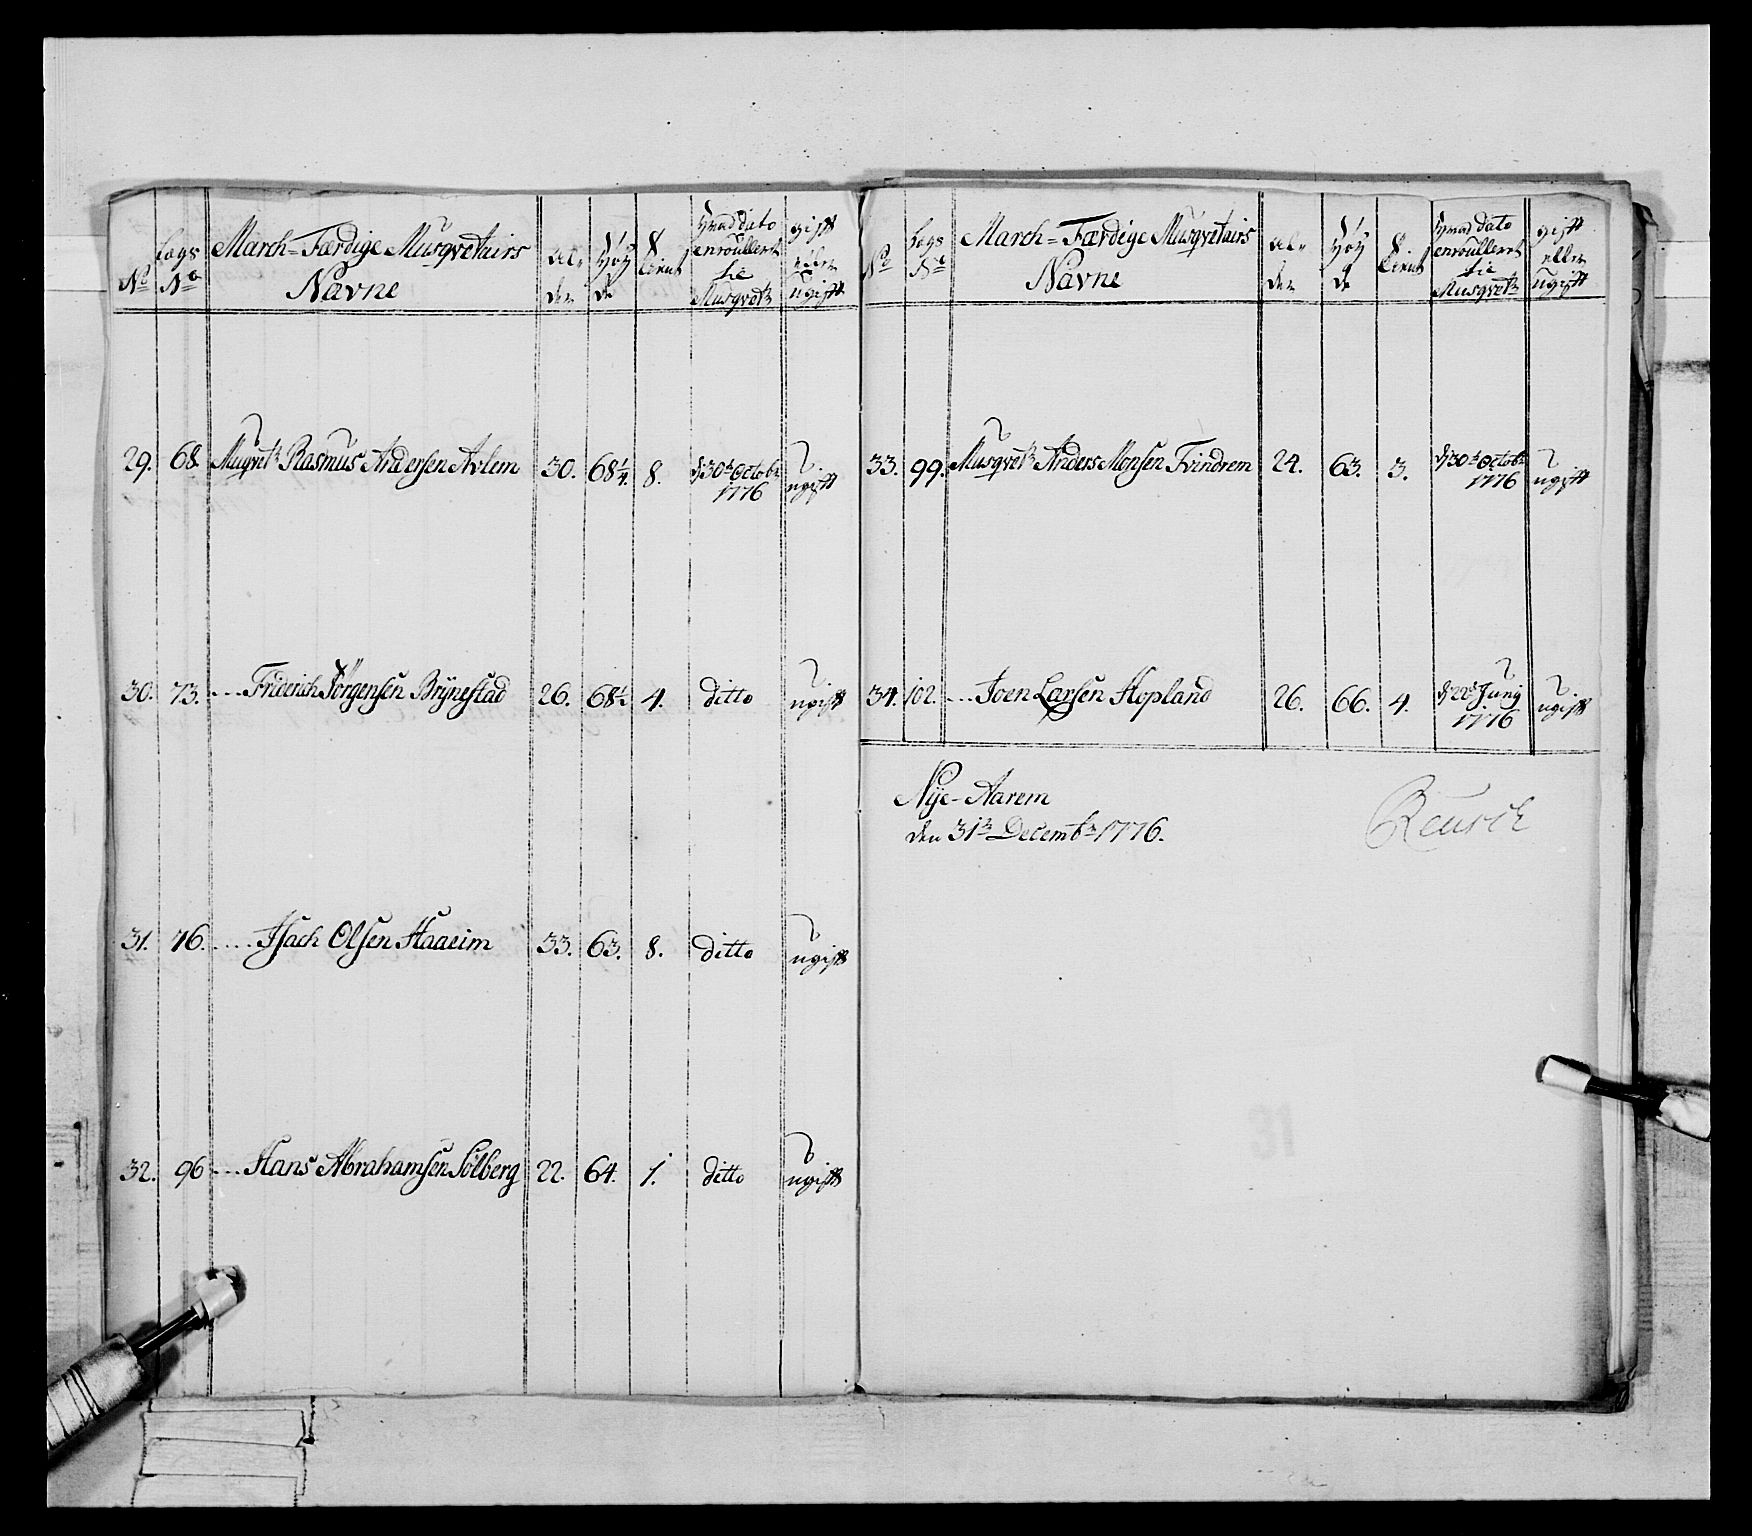 No
Lægs No
March-Færdige Musqvetairs
Navne
Al-
der
Høy
de
Tient
Hvad dato
enroulleret
tie
Musqvetr
gift
eller
ugift
29. 68 Musqvetr Rasmus Andersen Avlem 30. 68¼. 8. d 30te Octobr 1776 ugift
30. 73. .... Friderich Jörgensen Brÿnestad 26. 68½ 4. ditto ugift
31. 76. .... Isach Olsen Haaeim 33. 63. 8. ditto ugift
32. 96 .... Hans Abrahamsen Sölberg 22. 64. 1. ditto ugift
No
Lægs No
March-Færdige Musqvetairs
Navne
Al-
der
Høy
de
Tient
Hvad dato
enroulleret
tie
Musqvetr
gift
eller
ugift
33. 99. Musqvetr Anders Monsen Tvindrem 24. 63. 3. d 30te Octobr 1776 ugift
34. 102. ... Joen Larsen Hopland 26. 66. 4. d 22de Junÿ 1776 ugift
Nÿe-Aarem
den 31te Decembr 1776.
Reusch